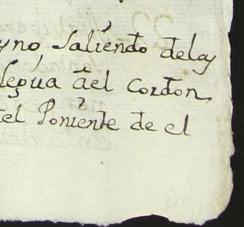 yno saliendo dela
legua del Cordon
el Poniente de el